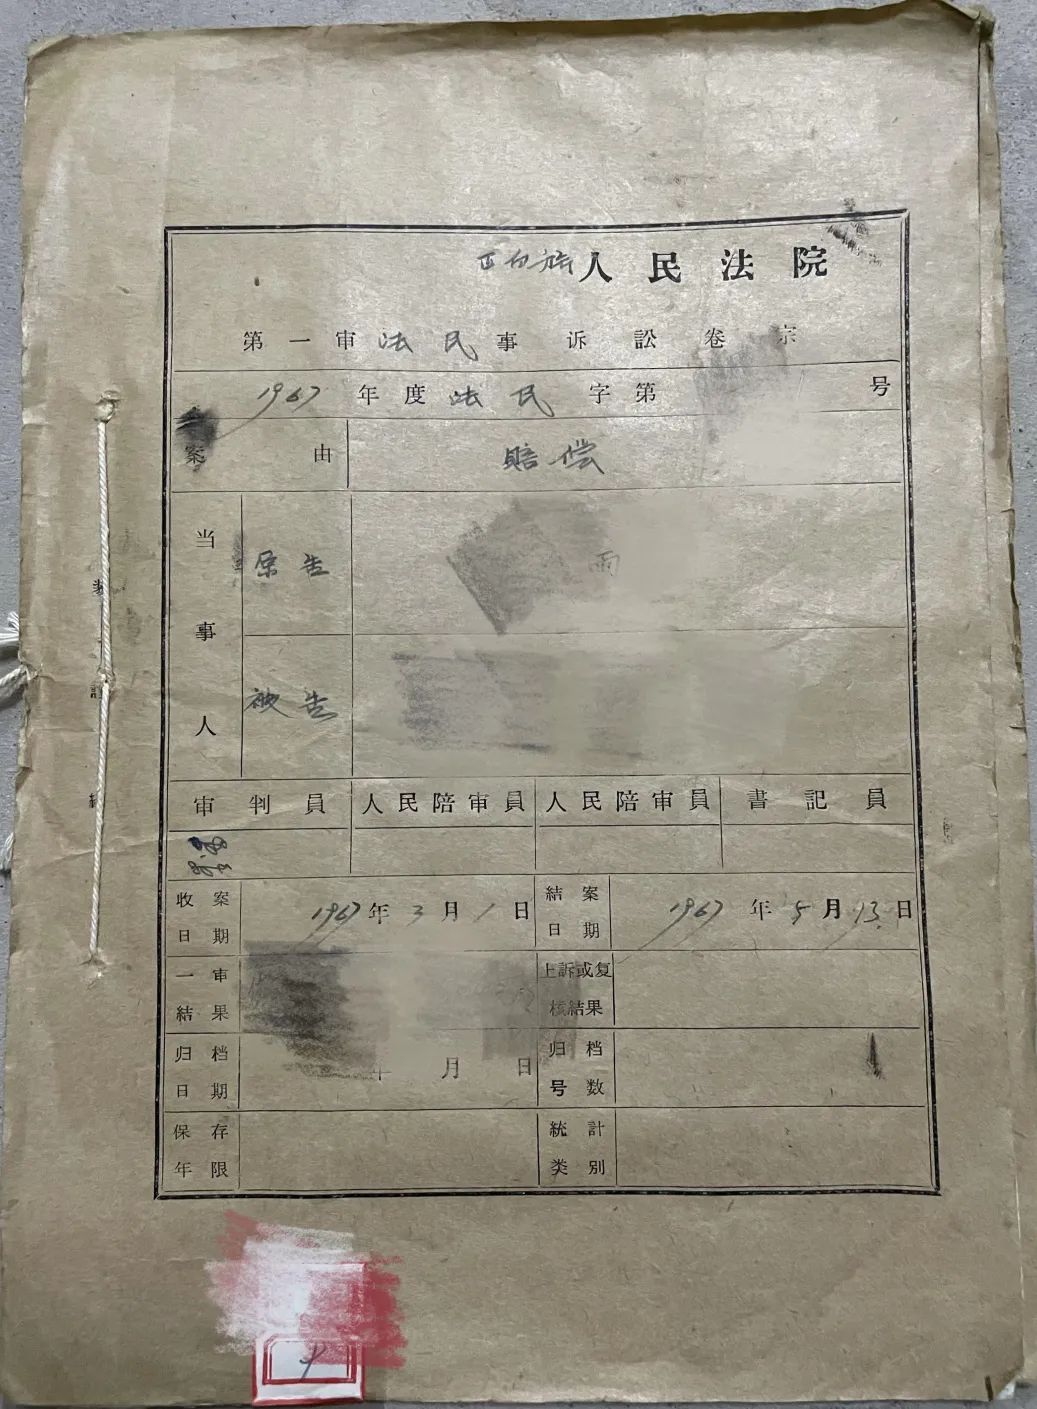 正白旗人民法院
第一审法民事诉訟卷宗
1967年度法民字第 号
案由 赔偿
当事人
原告 雨
被告
審判員 人民陪审員 人民陪审員 書記員
收案日期 1967年3月1日 結案日期 1967年5月13日
一审結果 上訴或复核結果
归档日期 年 月 日 归档号数
保存年限 統計类别
装訂線